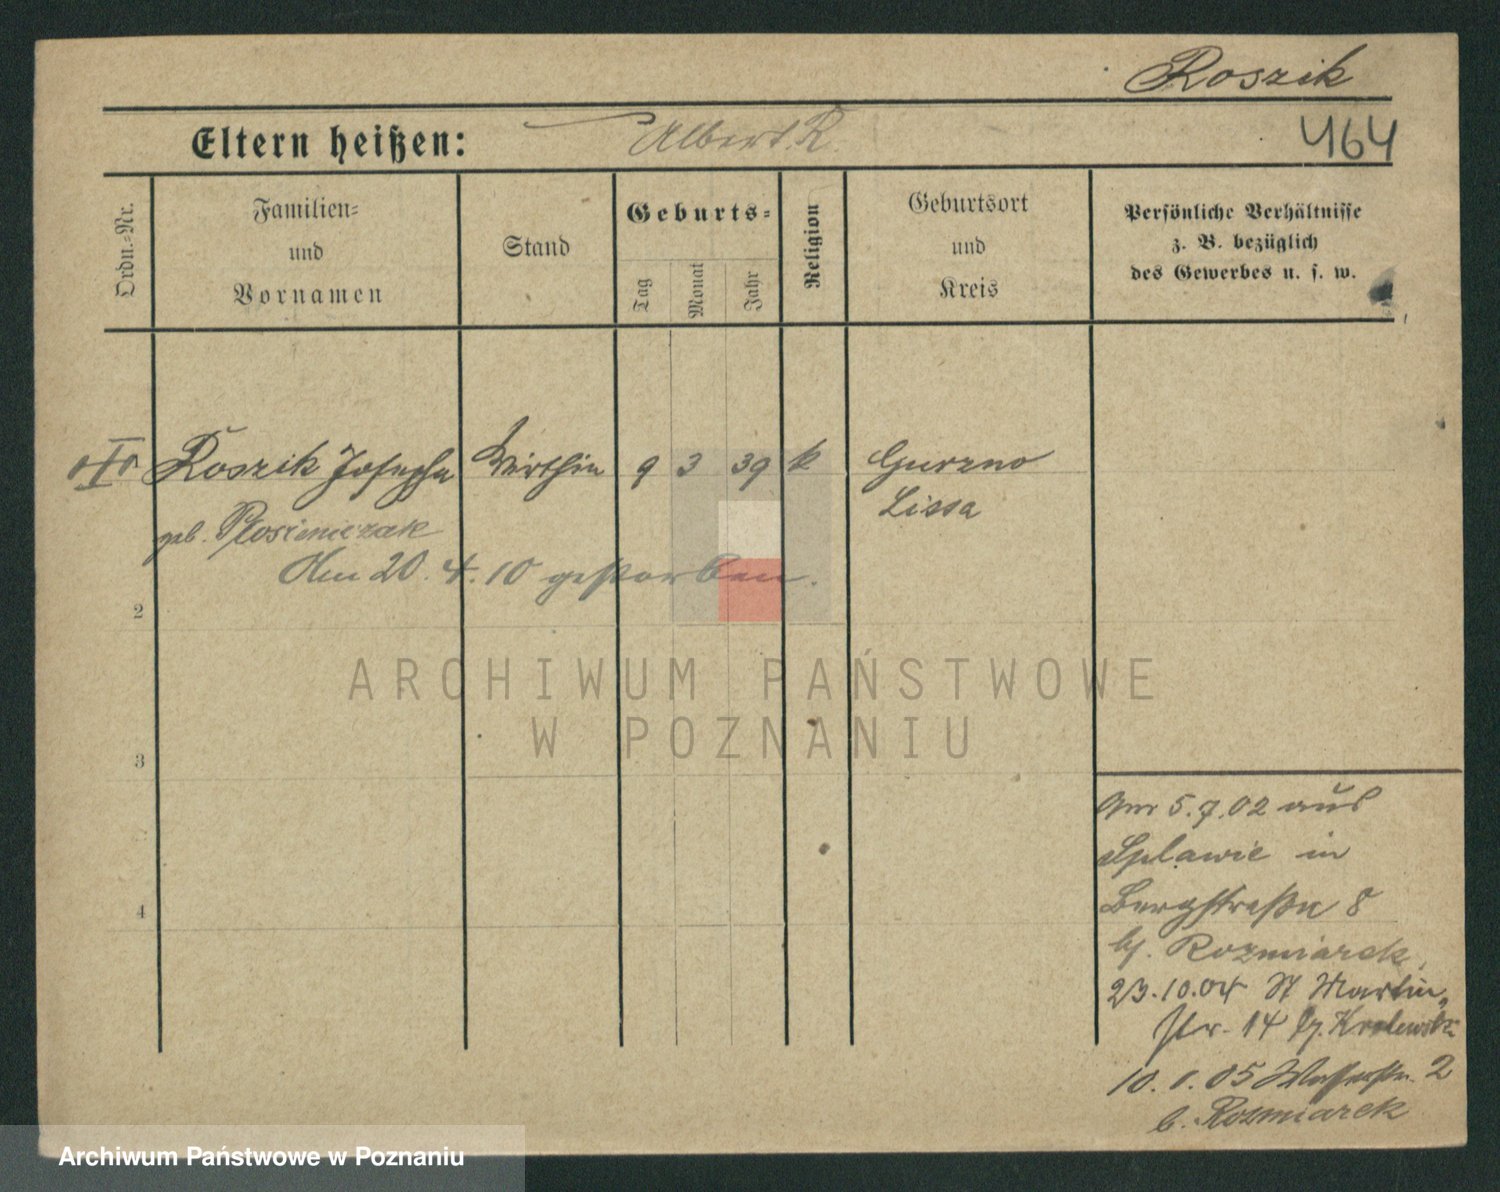 Roszik
Eltern heißen: Albert R.
464
Ordn.=Nr.
Familien=
und
Vornamen
Stand
Geburts=
Tag
Monat
Jahr
Religion
Geburtsort
und
Kreis
Persönliche Verhältnisse
z. B. bezüglich
des Gewerbes u. s. w.
Roszik Josepha Wirthin 9 3 39 k Gurzno
Lissa
geb.
Am 20. 4. 10 gestorben.
2
3
4
ARCHIWUM PAŃSTWOWE
W POZNANIU
5.7.02 aus
Splawie in
Bergstraße 8
bj. Rozmiarek,
23.10.04 St Martin
str. 14 bj.
10.1.05 Wasserstr. 2
b. Rozmiarek
Archiwum Państwowe w Poznaniu